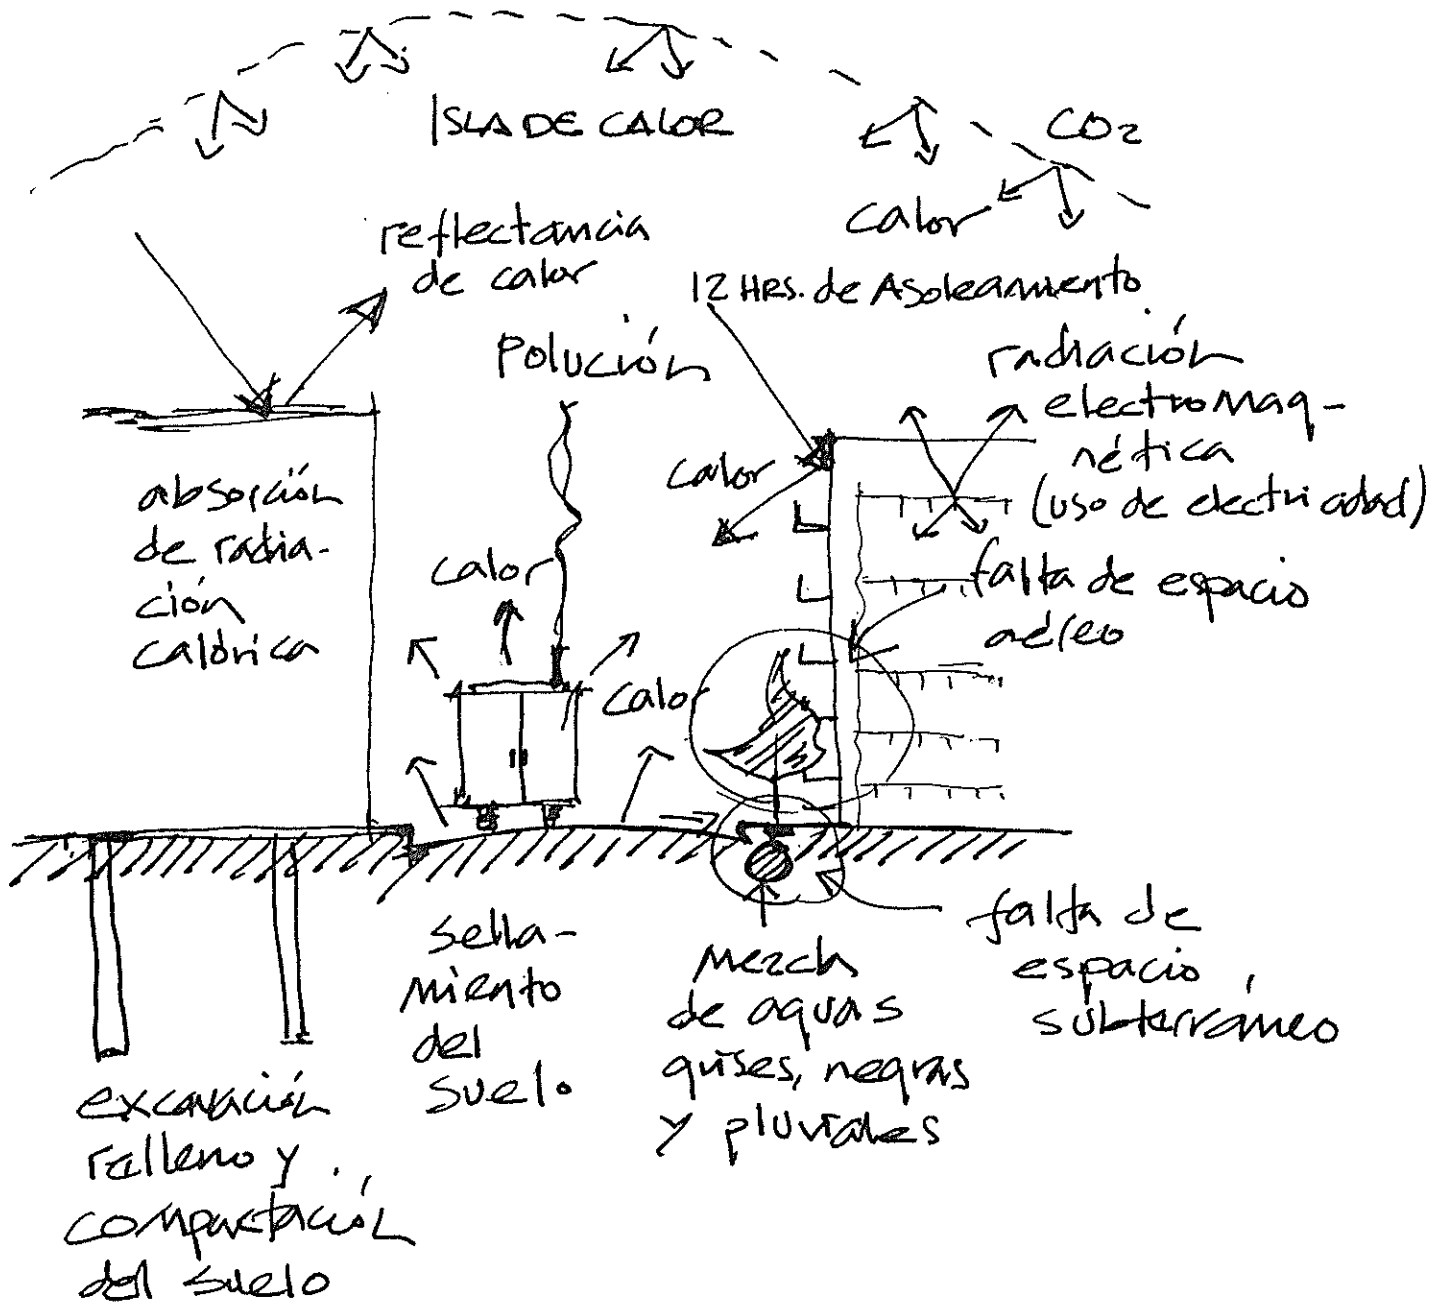 ISLA DE CALOR
CO2
calor
reflectancia
de calor
12 HRS. de Asoleamiento
Polución
radiación
electromag-
nética
(uso de electricidad)
calor
absorción
de radia-
ción
calórica
calor
falta de espacio
aéreo
calor
sella-
miento
del
suelo
mezcla
de aguas
grises, negras
y pluviales
falta de
espacio
subterráneo
excavación
relleno y
compactación
del suelo